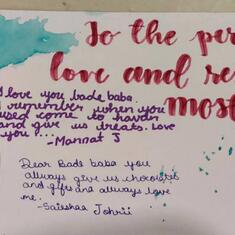 To the per
love and re
most
I love you bade baba.
I remember when you
used come to
and give us treats. Love
you...
-Mannat J
Dear Bade baba you
allways give us chocolates
and gifts and allways love
me.
-Saieshaa Johrii